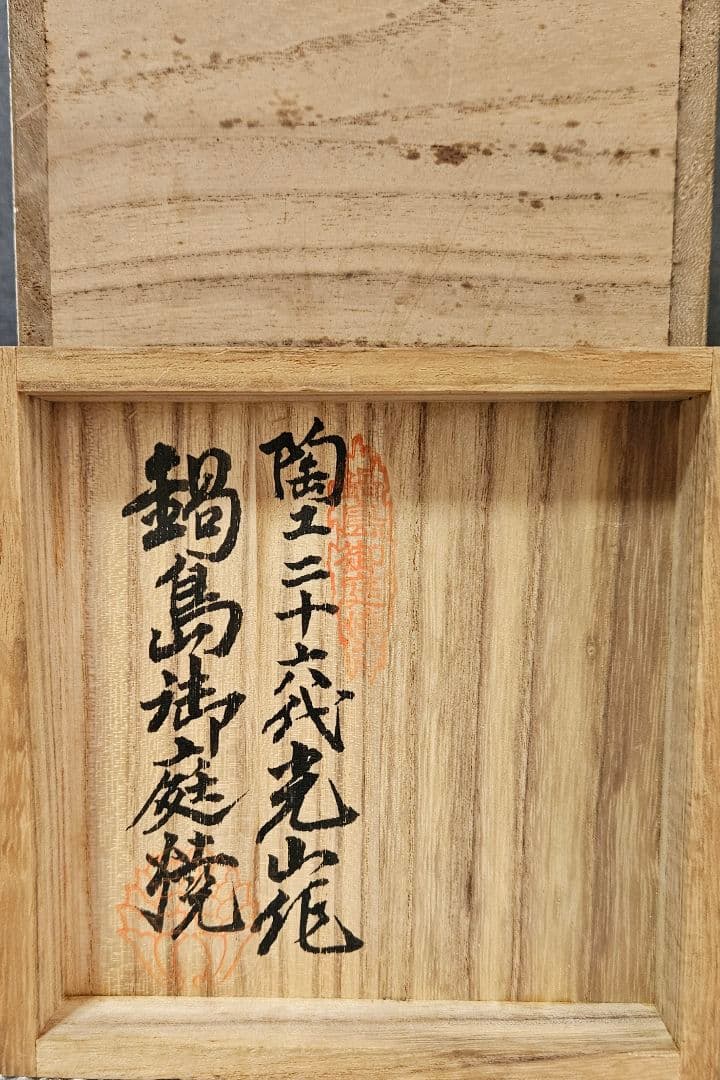 陶工二十六代光山作
鍋島御庭焼